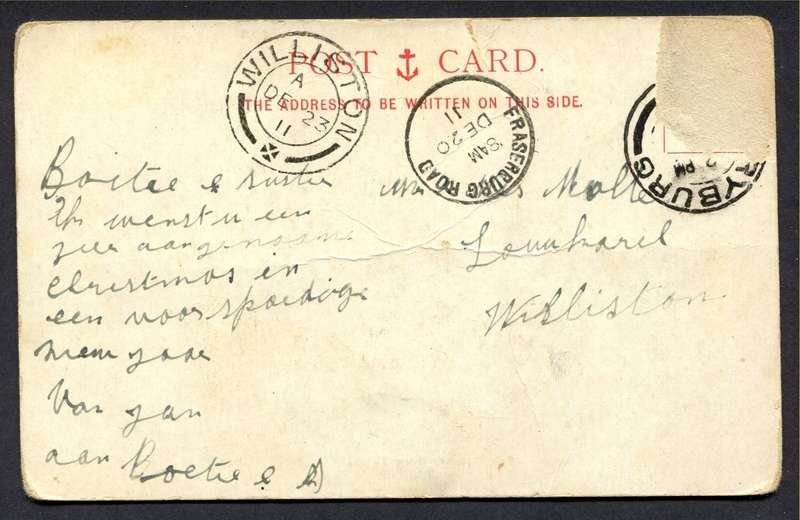 POST CARD.
THE ADDRESS TO BE WRITTEN ON THIS SIDE.
WILLISTON
A
DE 23
11
FRASERBURG ROAD
8AM
DE 20
11
YBURG
PM
Boetie & sustie
Ik wenst u een
zeer aangename
Christmas en
een voorspoedige
niew jaar
Van Jan
aan Boetie &
Williston